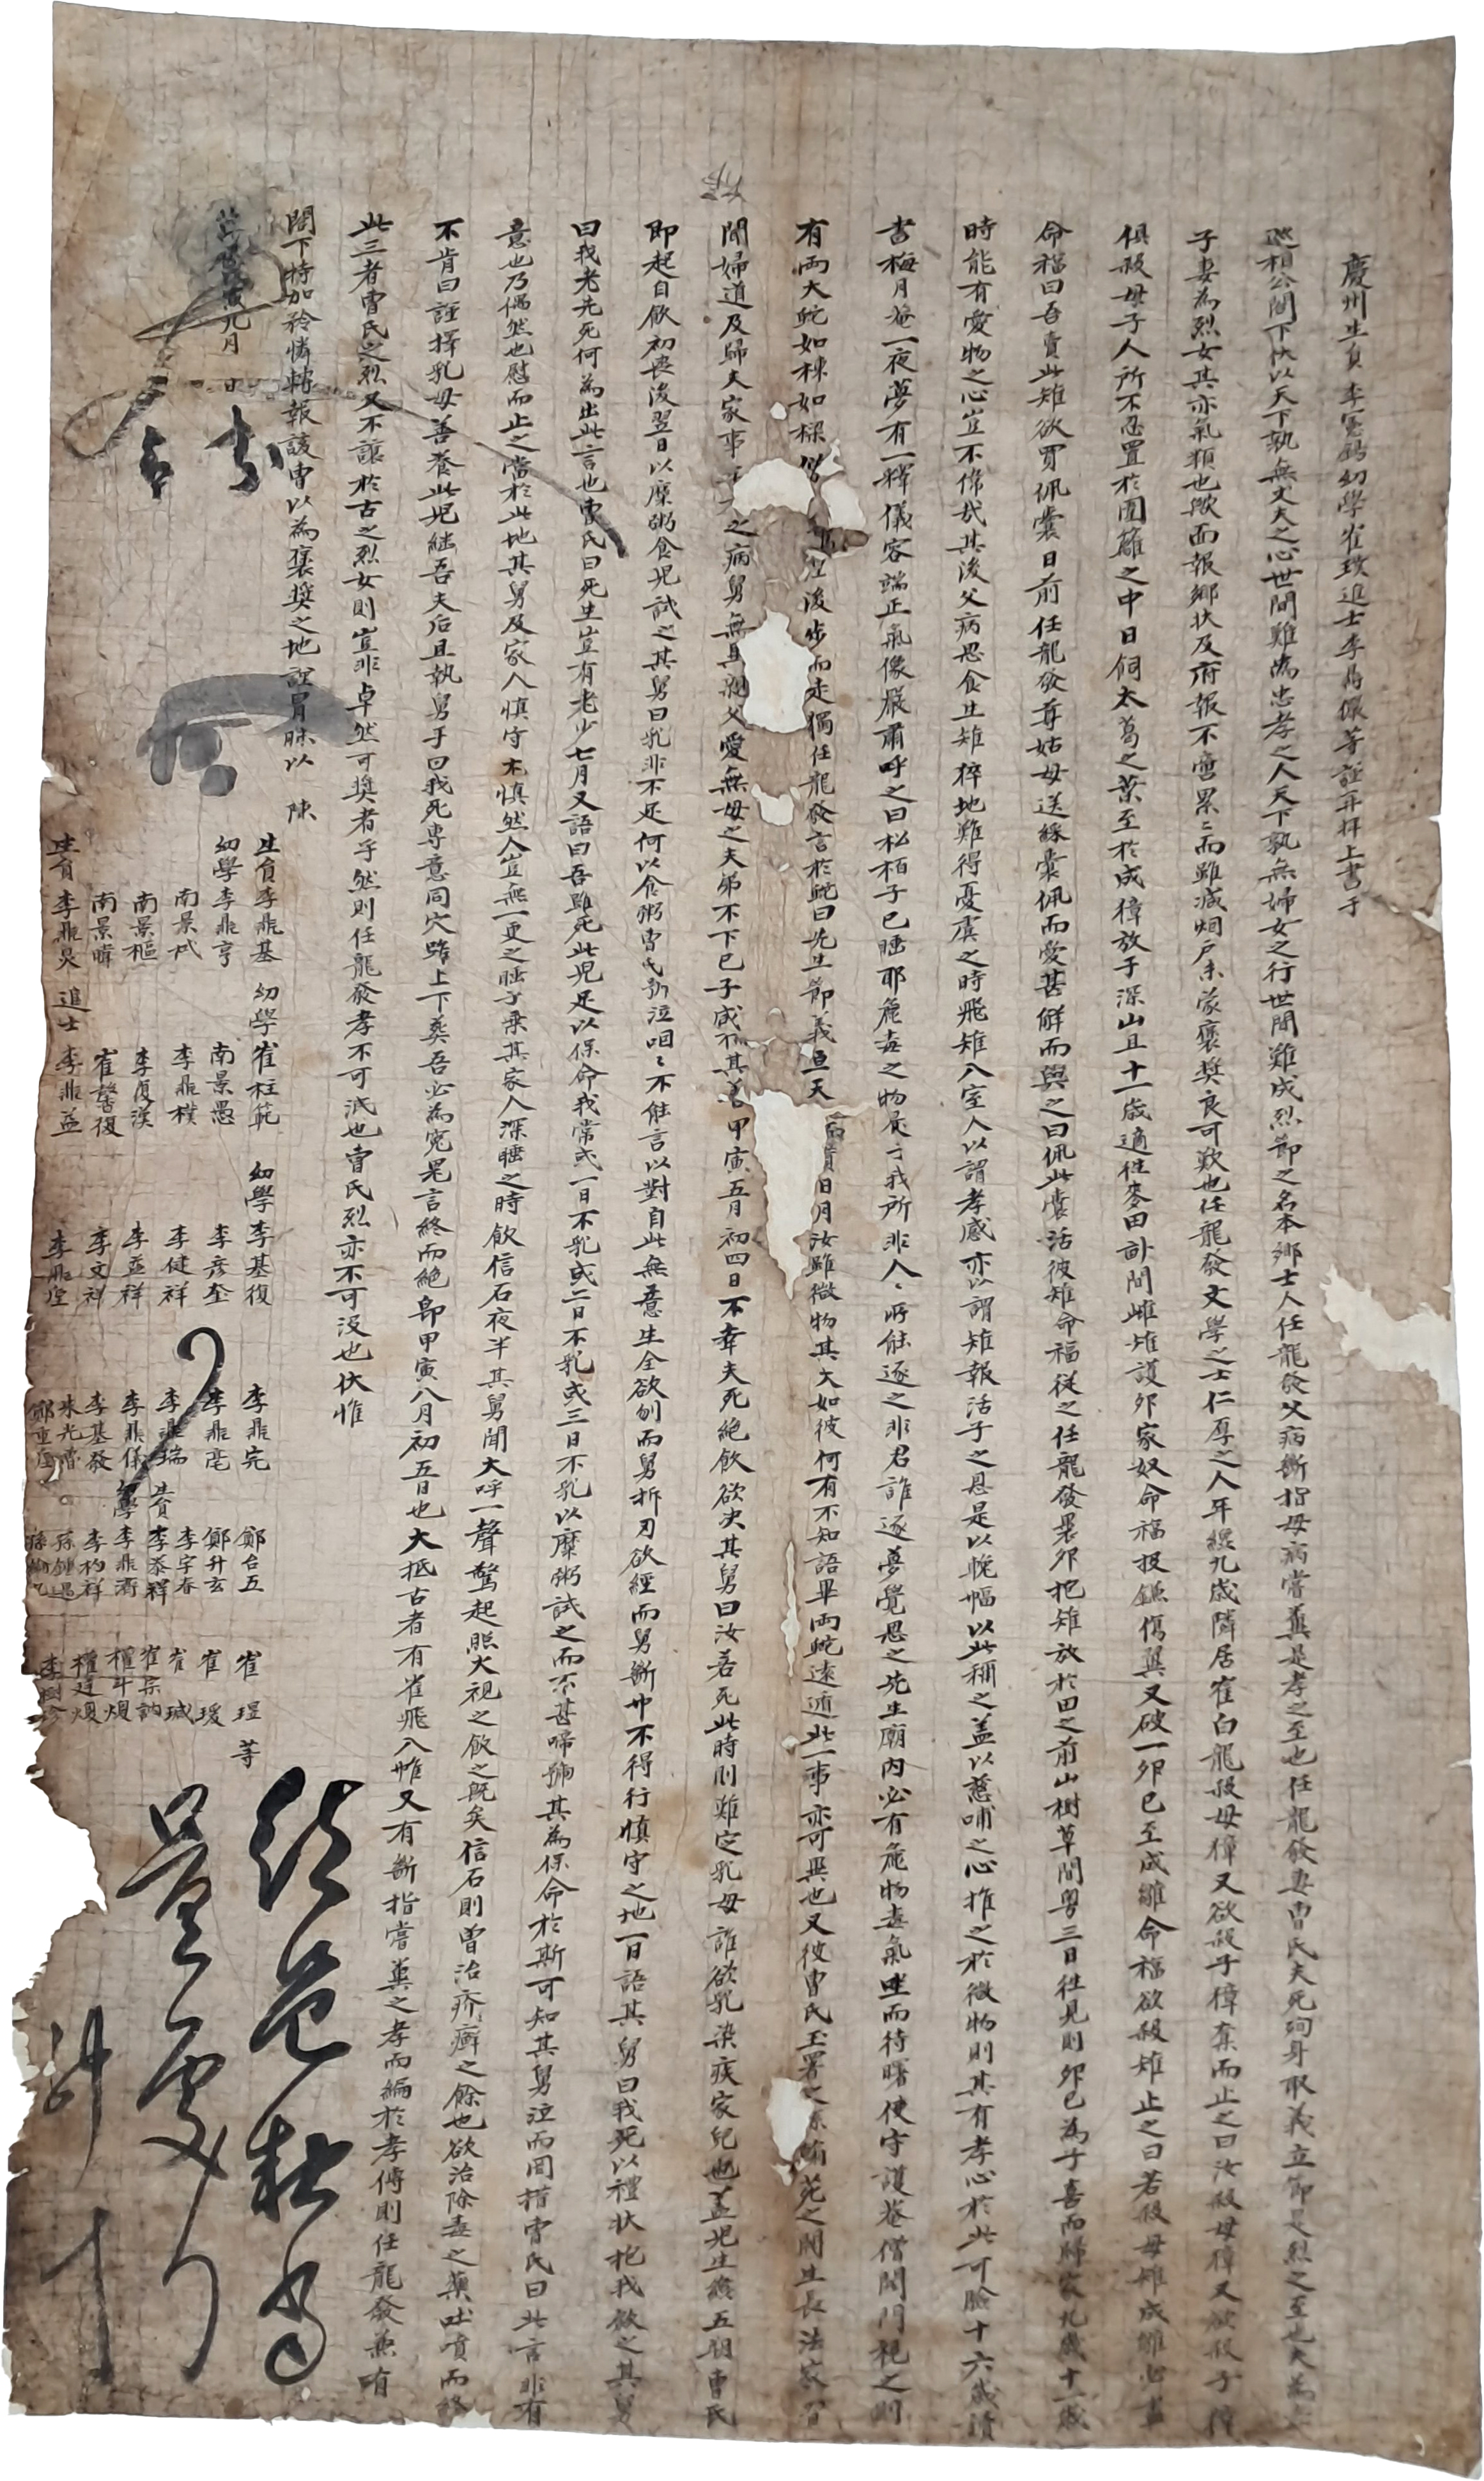 慶州生員李憲鎬幼學崔璞進士李鼎儼等謹再拜上書于
巡相公閤下伏以天下孰無丈夫之心世間難爲忠孝之人天下孰無婦女之行世間難成烈節之名本鄕士人任龍發父病斷指母病嘗糞是孝之至也任龍發妻曺氏夫死殉身取義立節是烈之至也夫爲
子妻爲烈女其亦氣類也歟面報鄕狀及府報不啻累〻而雖減烟戶未蒙褒獎良可歎也任龍發文學之士仁厚之人年纔九歲隣居崔白龍殺母獐又欲殺子獐奪而止之曰汝殺母獐又欲殺子獐
俱殺母子人所不忍置於園籬之中日飼太葛之葉至於成獐放于深山且十一歲適往麥田畝間雌雉護卵家奴命福投鎌傷翼又破一卵已至成雛命福欲殺雉止之曰若殺母雉成雛必
命福曰吾賣此雉欲買佩囊日前任龍發尊姑母送綵囊佩而愛甚解而與之曰佩此囊活彼雉命福從之任龍發裹卵抱雉放於田之前山樹草間粤三日往見則卵已爲子喜而歸家九歲十一歲
時能有愛物之心豈不偉哉其後父病思食生雉猝地難得憂虞之時飛雉入室人以謂孝感亦以謂雉報活子之恩是以晩幅以此稱之盖以慈哺之心推之於微物則其有孝心於此可驗十六歲讀
書梅月菴一夜夢有一稈儀容端正氣像嚴肅呼之曰松栢子已睡耶麁毒之物辰于我所非人〻所能逐之非君誰逐夢覺思之先生廟內必有麁物毒氣坐而待曙使守護菴僧開門視之則
有両大蛇如棟如樑 後步而走獨任龍發言於蛇曰先生節義亘天 貫日月汝雖微物其大如彼何有不知語畢両蛇遠遁此一事亦可異也又彼曺氏玉署之 之閥生長法家習
聞婦道及歸夫家事 之病舅無具 父愛無母之夫弟不下己子咸 其 甲寅五月初四日不幸夫死絶飮欲決其舅曰汝若死此時則難定乳母誰欲乳染疾家兒也盖兒生纔五朔曺氏
卽起自飮初喪後翌日以糜粥食兒試之其舅曰乳非不足何以食粥曺氏 泣咽〻不能言以對自此無意生全欲刎而舅折刃欲經而舅斷巾不得行愼守之地一日語其舅曰我死以禮狀抱我飮之其舅
曰我老先死何爲出此言也曺氏曰死生豈有老少七月又語曰吾雖死此兒足以保命我常或一日不乳或二日不乳或三日不乳以糜粥試之而不甚啼號其爲保命於斯可知其舅泣而因指曺氏曰此言非有
意也乃偶然也慰而止之當於此地其舅及家人愼守尤愼然人豈無一更之睡于乘其家人深睡之時飮信石夜半其舅聞大呼一聲驚起照火視之飮之旣矣信石則曾治疥癬之餘也欲治除毒之藥吐噴而終
不肯曰謹擇乳母善養此兒繼吾夫后且執舅手曰我死專意同穴雖上下葬吾必爲寃鬼言終而絶卽甲寅八月初五日也大抵古者有雀飛入帷又有斷指嘗糞之孝而編於孝傳則任龍發兼有
此三者曺氏之烈又不讓於古之烈女則豈非卓然可獎者乎然則任龍發孝不可泯也曺氏烈亦不可沒也伏惟
閤下特加矜憐轉報該曹以爲褒獎之地謹冒昧以 陳
九月 日
生員李鼎基 幼學崔柱範 幼學李基復 李鼎完 鄭台五 崔瑆等
幼學李鼎亨 南景愚 李彦奎 李鼎亳 鄭升玄 崔瑗
南景栻 李鼎樸 李健祥 李鼎瑞 李宇春 崔瑊
南景樞 李復漢 李孟祥 李鼎儀 生員李泰祥 崔宗訥
南景暐 崔馨復 李文祥 李基發 幼學李鼎濟 權斗煥
生員李鼎炅 進士李鼎益 李鼎瑩 朱光潛 李杓祥 權廷煥
鄭重 孫鍾遇 李樹